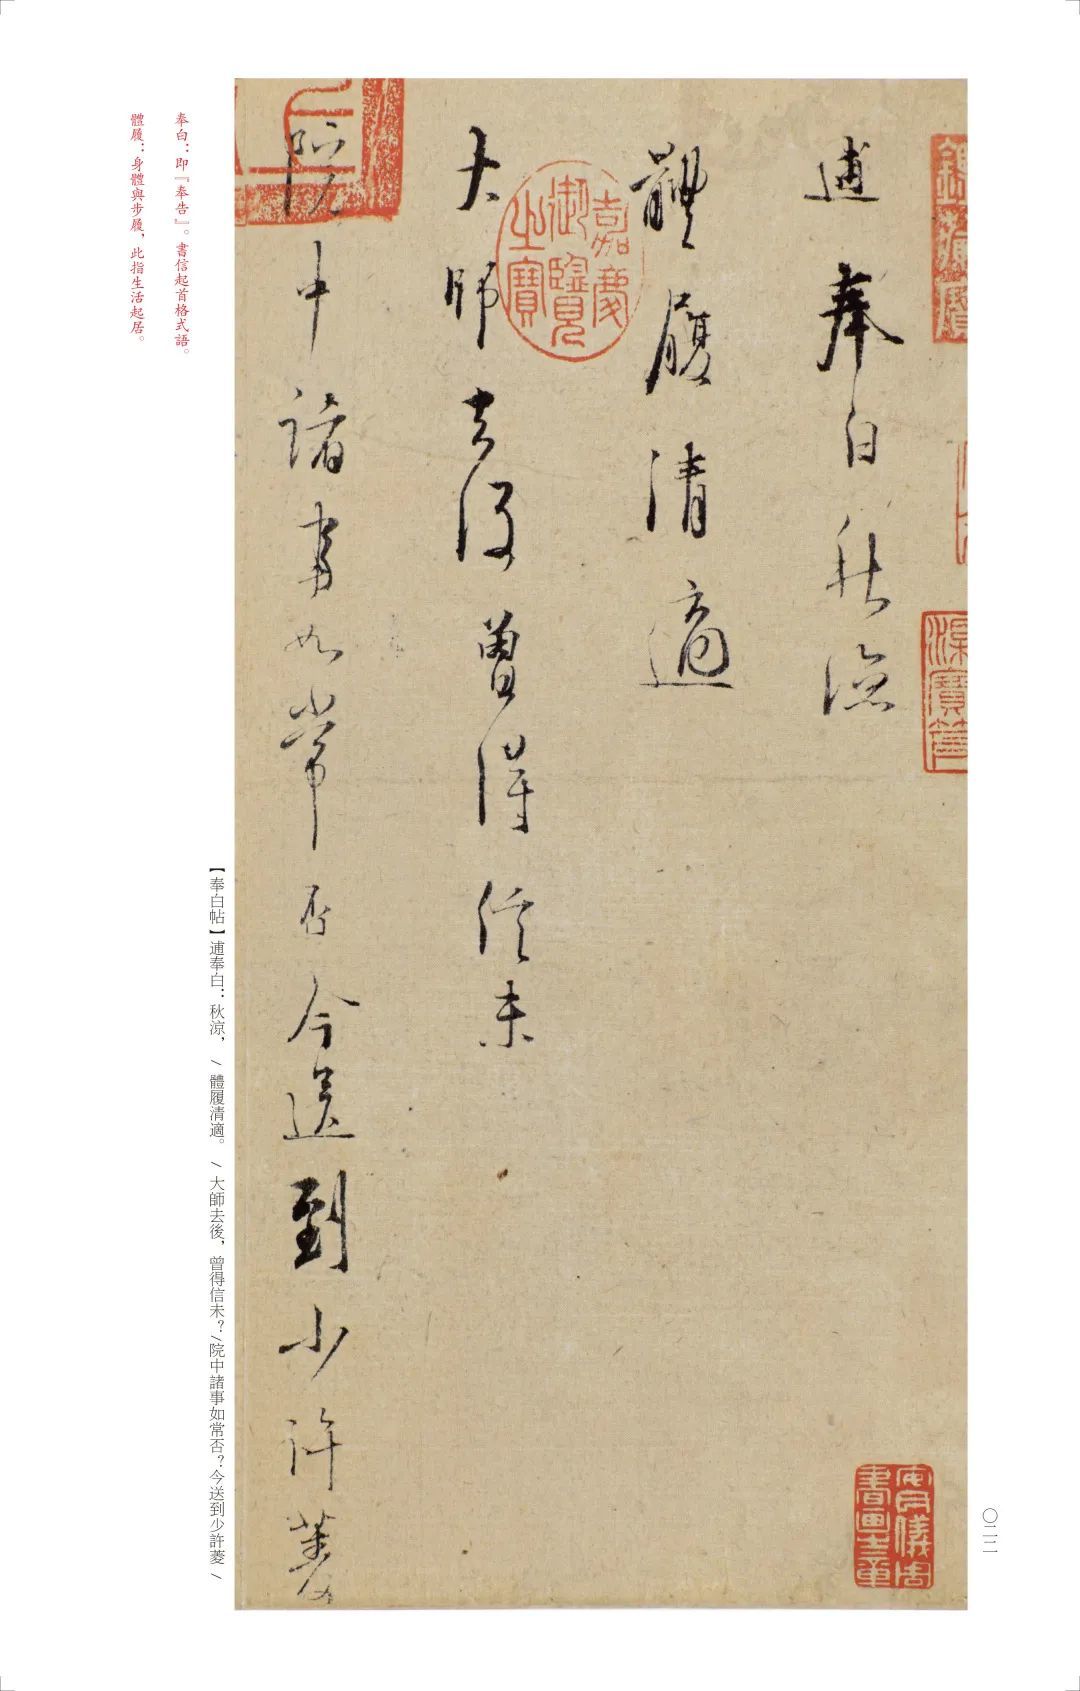 逋奉白秋涼
體履清適
大師去後曾得信未
院中諸事如常否今送到少許菱
嘉慶御覽之寶
安儀周書畫之章
奉白：即『奉告』。書信起首格式語。
體履：身體與步履，此指生活起居。
【奉白帖】逋奉白：秋涼，/體履清適。/大師去後，曾得信未？/院中諸事如常否？今送到少許菱/
〇二二